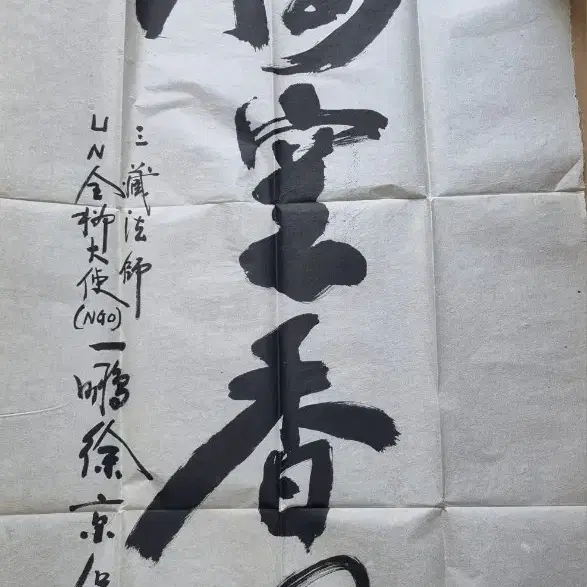 室香
三藏法師
UN全柳大使(NGO)一鵬徐京保